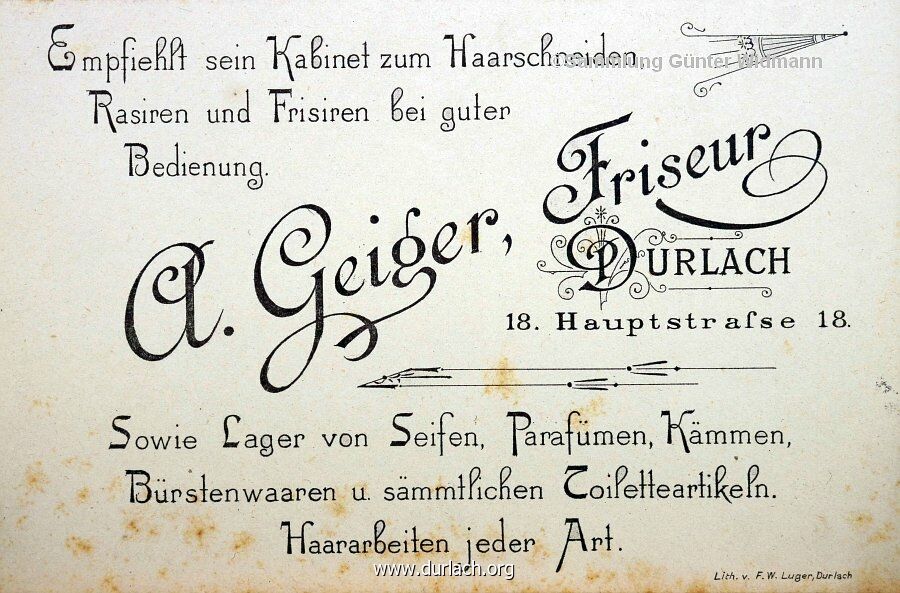 Empfiehlt sein Kabinet zum Haarschneiden,
©Sammlung Günter Widmann
Rasiren und Frisiren bei guter
Bedienung.
A. Geiger, Friseur
DURLACH
18. Hauptstraſse 18.
Sowie Lager von Seifen, Parafümen, Kämmen,
Bürstenwaaren u. sämmtlichen Toiletteartikeln.
Haararbeiten jeder Art.
www.durlach.org
Lith. v. F. W. Luger, Durlach